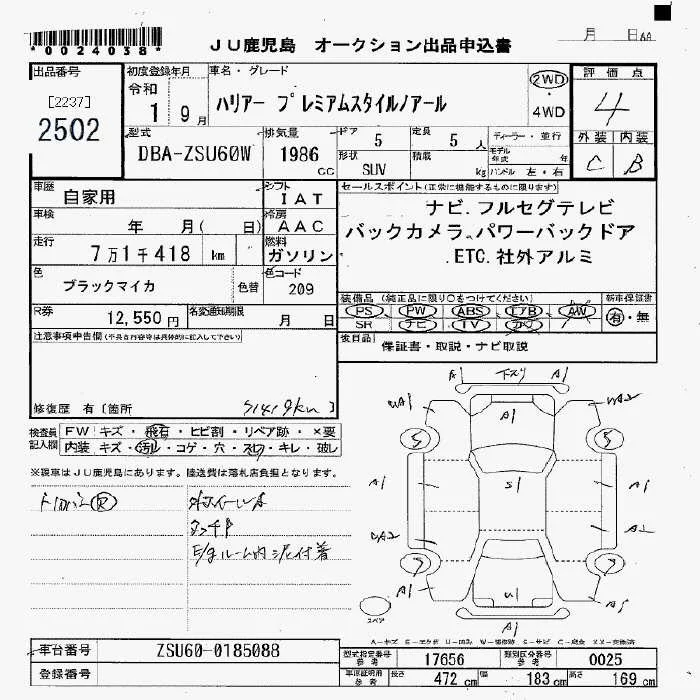 *0024038*
JU鹿児島 オークション出品申込書
月 日
出品番号 初度登録年月 車名・グレード 評価点
[2237]
2502
令和
1 9月
ハリアー プレミアムスタイルノアール
2WD
・
4WD
4
外装 内装
C B
型式 排気量 ドア 定員 ディーラー・並行
DBA-ZSU60W 1986 cc
5 5 人
形状 SUV 積載 kg
モデル年式 年
ハンドル 左・右
車歴 自家用
シフト IAT
車検 年 月( 日)
冷房 AAC
走行 7万1千418 km
燃料 ガソリン
色 ブラックマイカ 色替
色コード 209
セールスポイント(正常に機能するものに限ります)
ナビ.フルセグテレビ
バックカメラ.パワーバックドア
.ETC.社外アルミ
R券 12,550円
名変通知期限 月 日
装備品 (純正品に限り○をつけてください) 新車保証書
PS PW ABS エアB AW
SR ナビ TV カワ
有・無
後日品 保証書・取説・ナビ取説
注意事項申告欄(不具合内容等は具体的に記入して下さい)
修復歴 有〔箇所 〕
71419km
検査員記入欄
FW キズ・飛石・ヒビ割・リペア跡・×要
内装 キズ・汚れ・コゲ・穴・スレ・キレ・破レ
※現車はJU鹿児島にあります。陸送費は落札店負担となります。
タッチP
E/gルーム内 泥付着
A 下スリ A1
A1
UA1 UA2
5 5
A1 S1 A1
UA2 A2
7 7
A1 U1 A1
A1
スペア
車台番号 ZSU60-0185088
登録番号
型式指定番号 参考 17656 類別区分番号 参考 0025
車庫証明用 参考 長さ 472 cm 幅 183 cm 高さ 169 cm